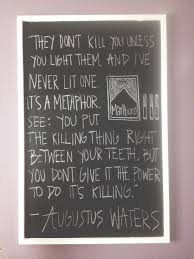 "THEY DON'T KILL YOU UNLESS
YOU LIGHT THEM. AND I'VE
NEVER LIT ONE.
IT'S A METAPHOR.
SEE: YOU PUT
THE KILLING THING RIGHT
BETWEEN YOUR TEETH, BUT
YOU DON'T GIVE IT THE POWER
TO DO ITS KILLING."
- AUGUSTUS WATERS
Marlboro